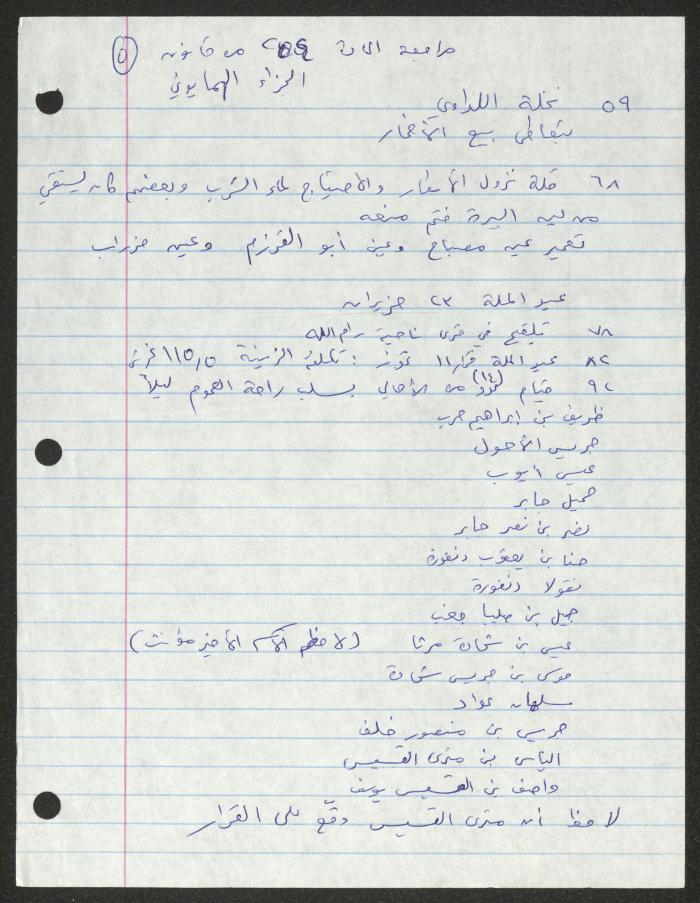 مراجعة المادة ٢٥٤ من قانون
الجزاء الهمايوني
٥
٥٩ نخلة اللداوي
يتعاطى بيع الأفخار
٦٨ قلة نزول الأمطار والاحتياج لماء الشرب وبعضهم كان يستقي
من ليه البيرة فتم منعه
تعمير عين مصباح وعين أبو القرزم وعين مزراب
عيد الملة ٢٣ حزيران
٧٨ تلقيح في قرى ناحية رام الله
٨٢ عيد الملة قرار ١١ تموز : تكلفة الزينة ١١٥,٥ غرش
٩٢ قيام (١٤) من الأهالي بسلب راحة العموم ليلاً
ظريف بن ابراهيم حرب
جريس الأحول
عيسى ايوب
جميل جابر
نصر بن نصر جابر
حنا بن يعقوب دنفورة
نقولا دنفورة
جميل بن صليبا مغنم
عيسى بن شحادة مرتا (لاحظ الاسم الأخير مؤنث)
موسى بن جريس شحادة
سلمان عواد
جريس بن منصور خلف
الياس بن متري القسيس
واصف بن القسيس يوسف
لاحظ أن متري القسيس وقّع على القرار